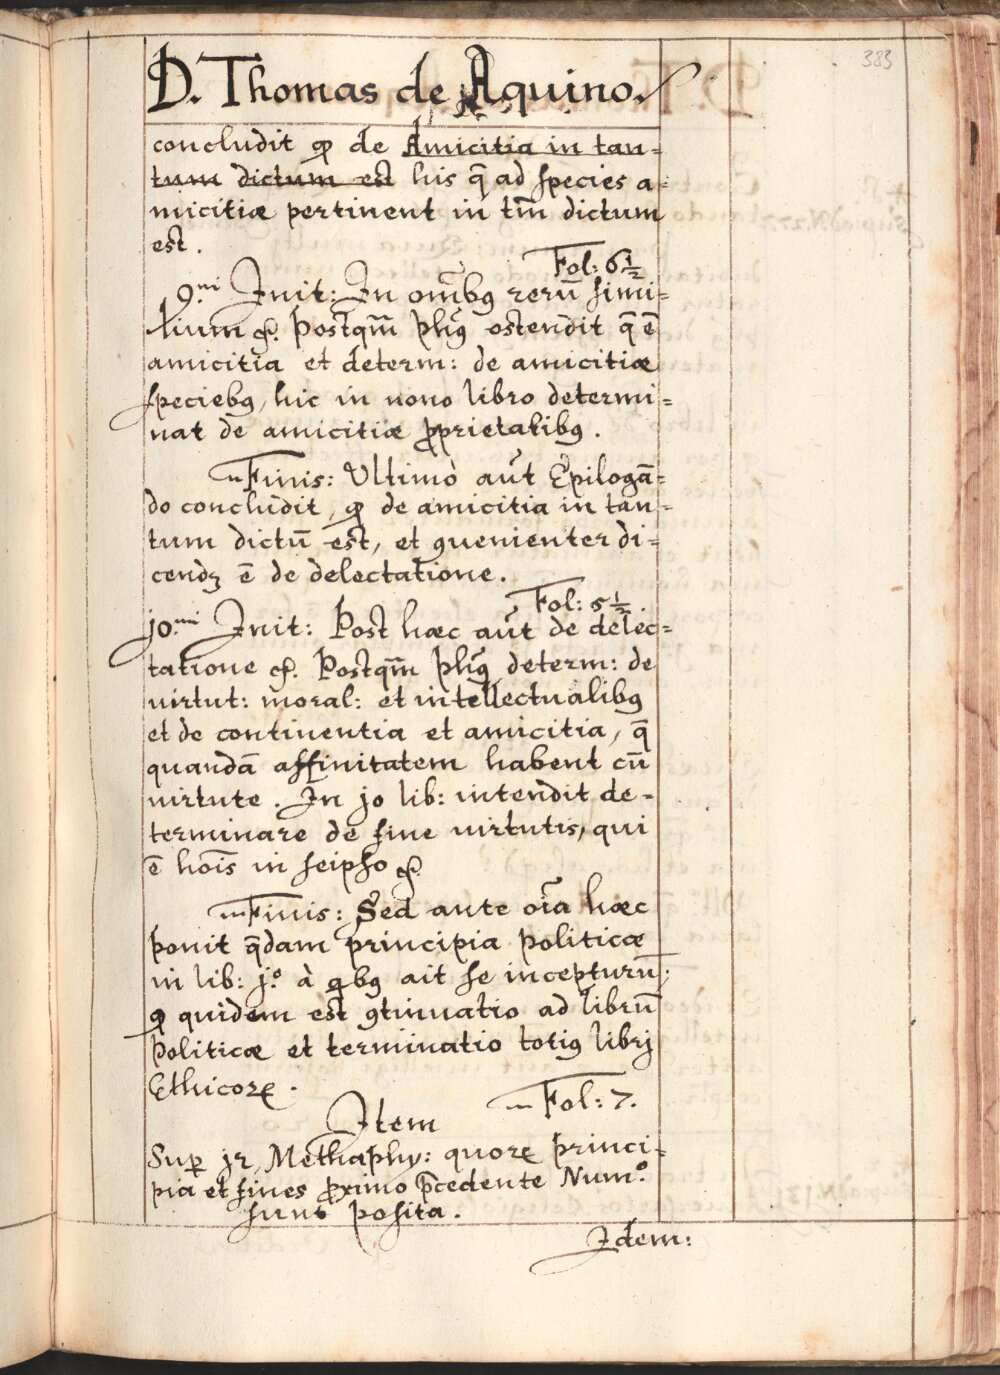 383
D. Thomas de Aquino.
concludit ꝙ de Amicitia in tan=
tum dictum est his q̄ ad species a=
micitiæ pertinent in tm̄ dictum
est.
Fol: 6½
9.ni Init: In om̄ibꝯ rerū simi=
lium &. Postqm̄ phūs ostendit q̄ ē
amicitia et determ: de amicitiæ
speciebꝯ, hic in nono libro determi=
nat de amicitiæ ꝓprietatibꝯ.
Finis: Ultimò aūt Epilogā=
do concludit, ꝙ de amicitia in tan=
tum dictū est, et ꝯuenienter di=
cendꝫ ē de delectatione.
Fol: 5½.
jo.mi Init: Post hæc aūt de delec=
tatione &. Postqm̄ phūs determ: de
virtut: moral: et intellectualibꝯ
et de continentia et amicitia, q̄
quandā affinitatem habent cū
virtute. In jo lib: intendit de=
terminare de fine virtutis, qui
ē hoīs in seipso &
Finis: Sed ante oīa hæc
ponit q̄dam principia politicæ
in lib: j.o à qbꝯ ait se incepturū;
ꝙ quidem est ꝯtinuatio ad librū
Politicæ et terminatio totiꝯ librj
Ethicorꝝ.
Fol: 7.
Item
Suꝑ jr, Methaphy: quorꝝ princi=
pia et fines ꝓximo p̄cedente Num.o
sunt posita.
Idem: